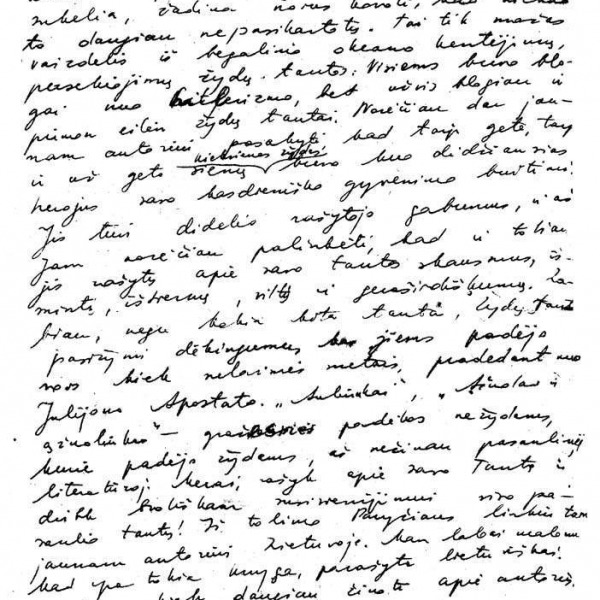 sukelia, žadina norus kovoti, kad niekad
to daugiau nepasikartotų. Tai tik mažas
vaizdelis iš begalinio okeano kentėjimų,
persekiojimų žydų tautos. Visiems buvo blo-
gai nuo hitlerizmo, bet visų blogiau ir
pirmon eilėn žydų tautai. Norėčiau dar jau-
nam autoriui pasakyti kad toje gete, tarp
kiekvienas žydas
ir už geto sienų buvo kuo didžiausias
herojus savo kasdieniško gyvenimo buitimi.
Jis turi didelio rašytojo gabumus, ir aš
Jam norėčiau palinkėti, kad ir toliau
jis rašytų apie savo tautos skausmus, iš-
mintį, ištvermę, viltį ir geraširdiškumą. La-
biau, negu kokia kita tauta, žydų tauta
pasižymi dėkingumu jiems padėjo
nors kiek nelaimės metais, pradedant nuo
Julijono Apostato. „Aušinkai", „Ąžuolai ir
ąžuoliukai" – padėkos nežydams,
kurie padėjo žydams, aš nežinau pasaulinėj
literatūroj kerai, rašyk apie savo Tautą ir
dirbk broliškam susivienijimui viso pa-
saulio tautų! Iš tolimo Paryžiaus linkiu tam
jaunam autoriui Lietuvoje. Man labai malonu
kad ypa tokia knyga, parašyta lietuviškai.
kiek daugiau žinoti apie autorių.